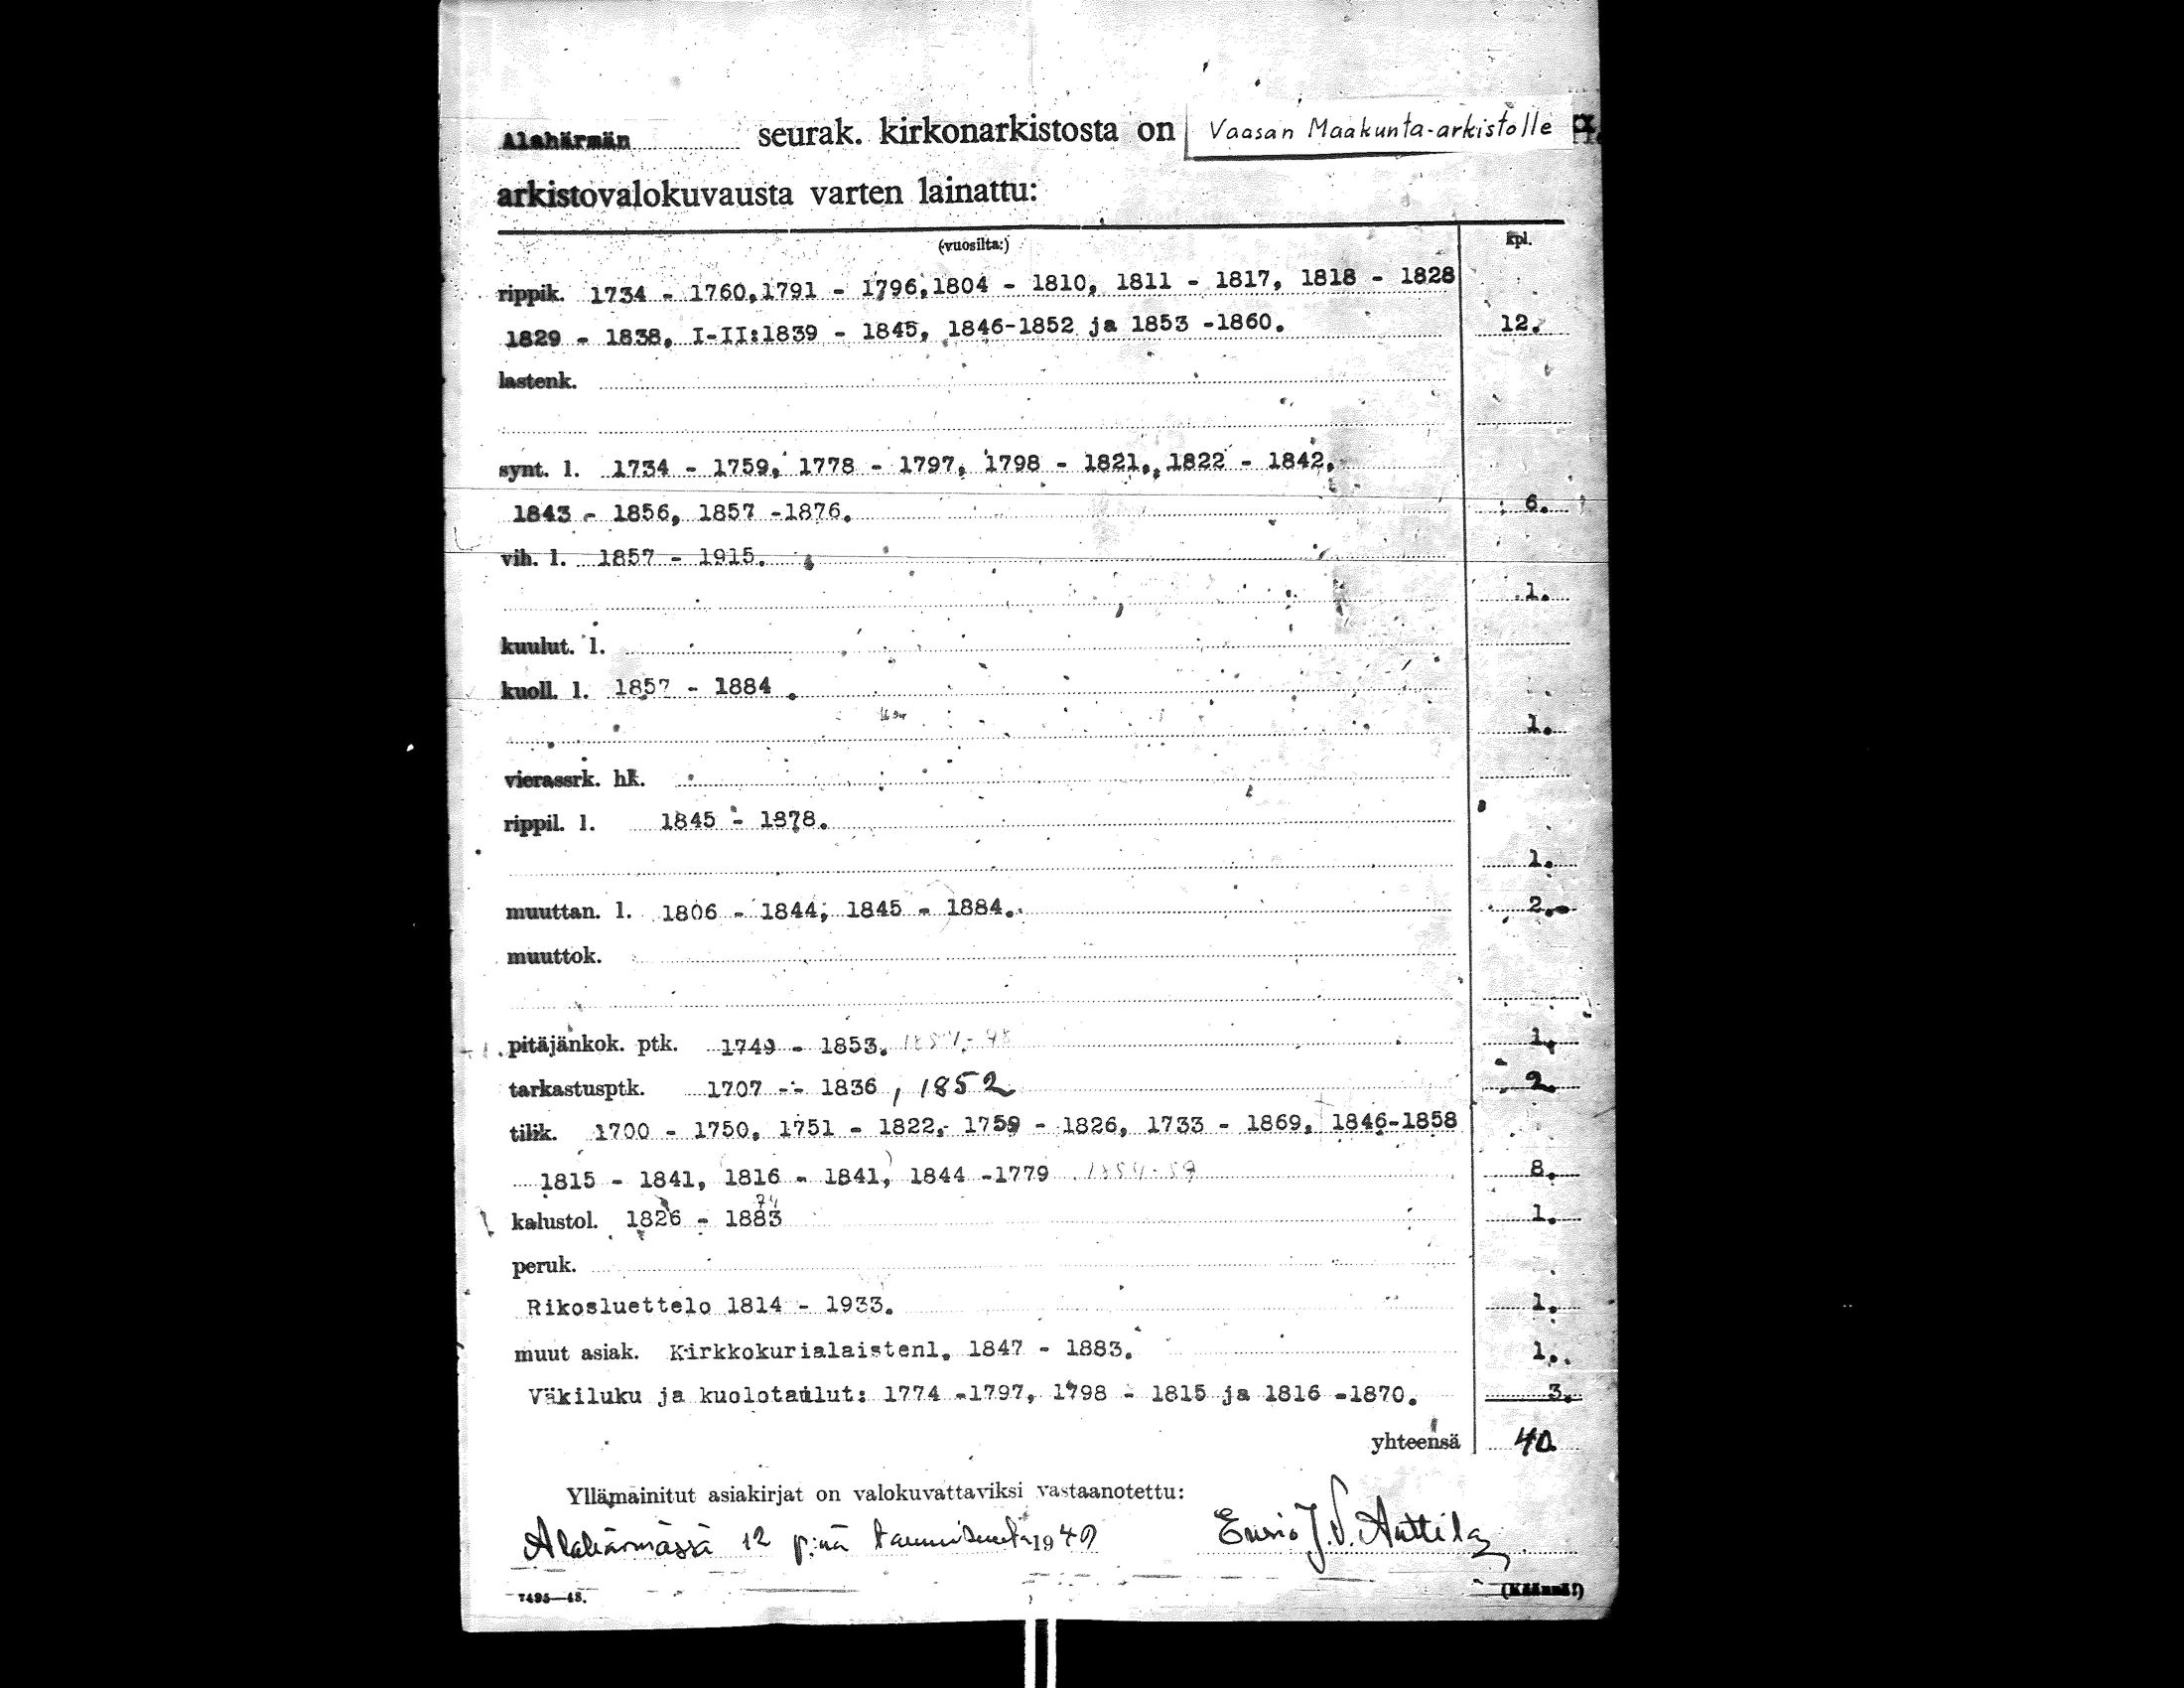 Alahärmän seurak. kirkonarkistosta on Vaasan Maakunta-arkistolle
arkistovalokuvausta varten lainattu:
(vuosilta:) kpl.
rippik. 1734 - 1760,1791 - 1796,1804 - 1810, 1811 - 1817, 1818 - 1828
1829 - 1838, I-II:1839 - 1845, 1846-1852 ja 1853 -1860. 12.
lastenk.
synt. l. 1734 - 1759, 1778 - 1797, 1798 - 1821, 1822 - 1842,
1843 - 1856, 1857 -1876. 6.
vih. l. 1857 - 1915.
1.
kuulut. l.
kuoll. l. 1857 - 1884.
1.
vierassrk. hk.
rippil. l. 1845 - 1878.
1.
muuttan. l. 1806 - 1844, 1845 - 1884. 2.
muuttok.
pitäjänkok. ptk. 1749 - 1853. 1.
tarkastusptk. 1707 -- 1836, 1852 2.
tilik. 1700 - 1750, 1751 - 1822, 1759 - 1826, 1733 - 1869, 1846-1858
1815 - 1841, 1816 - 1841, 1844 -1779 1854-59 8.
74
kalustol. 1826 - 1883 1.
peruk.
Rikosluettelo 1814 - 1933. 1.
muut asiak. Kirkkokurialaistenl. 1847 - 1883. 1.
Väkiluku ja kuolotaulut: 1774 -1797, 1798 - 1815 ja 1816 -1870. 3.
yhteensä 40.
Yllämainitut asiakirjat on valokuvattaviksi vastaanotettu:
Alahärmässä 12 p:nä tammikuuta 1949 Ensio J.V. Anttila
7495—48. (Käännä!)